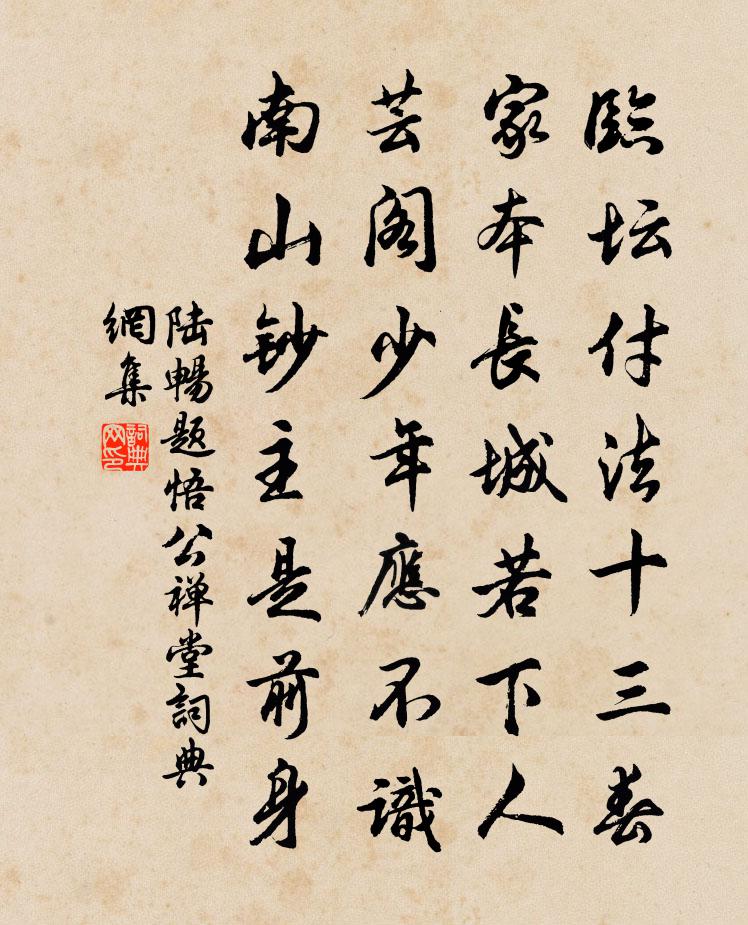 臨坛付法十三春
家本長城若下人
芸阁少年應不識
南山鈔主是前身
陆暢題悟公禅堂詞典
網集
詞典
网印